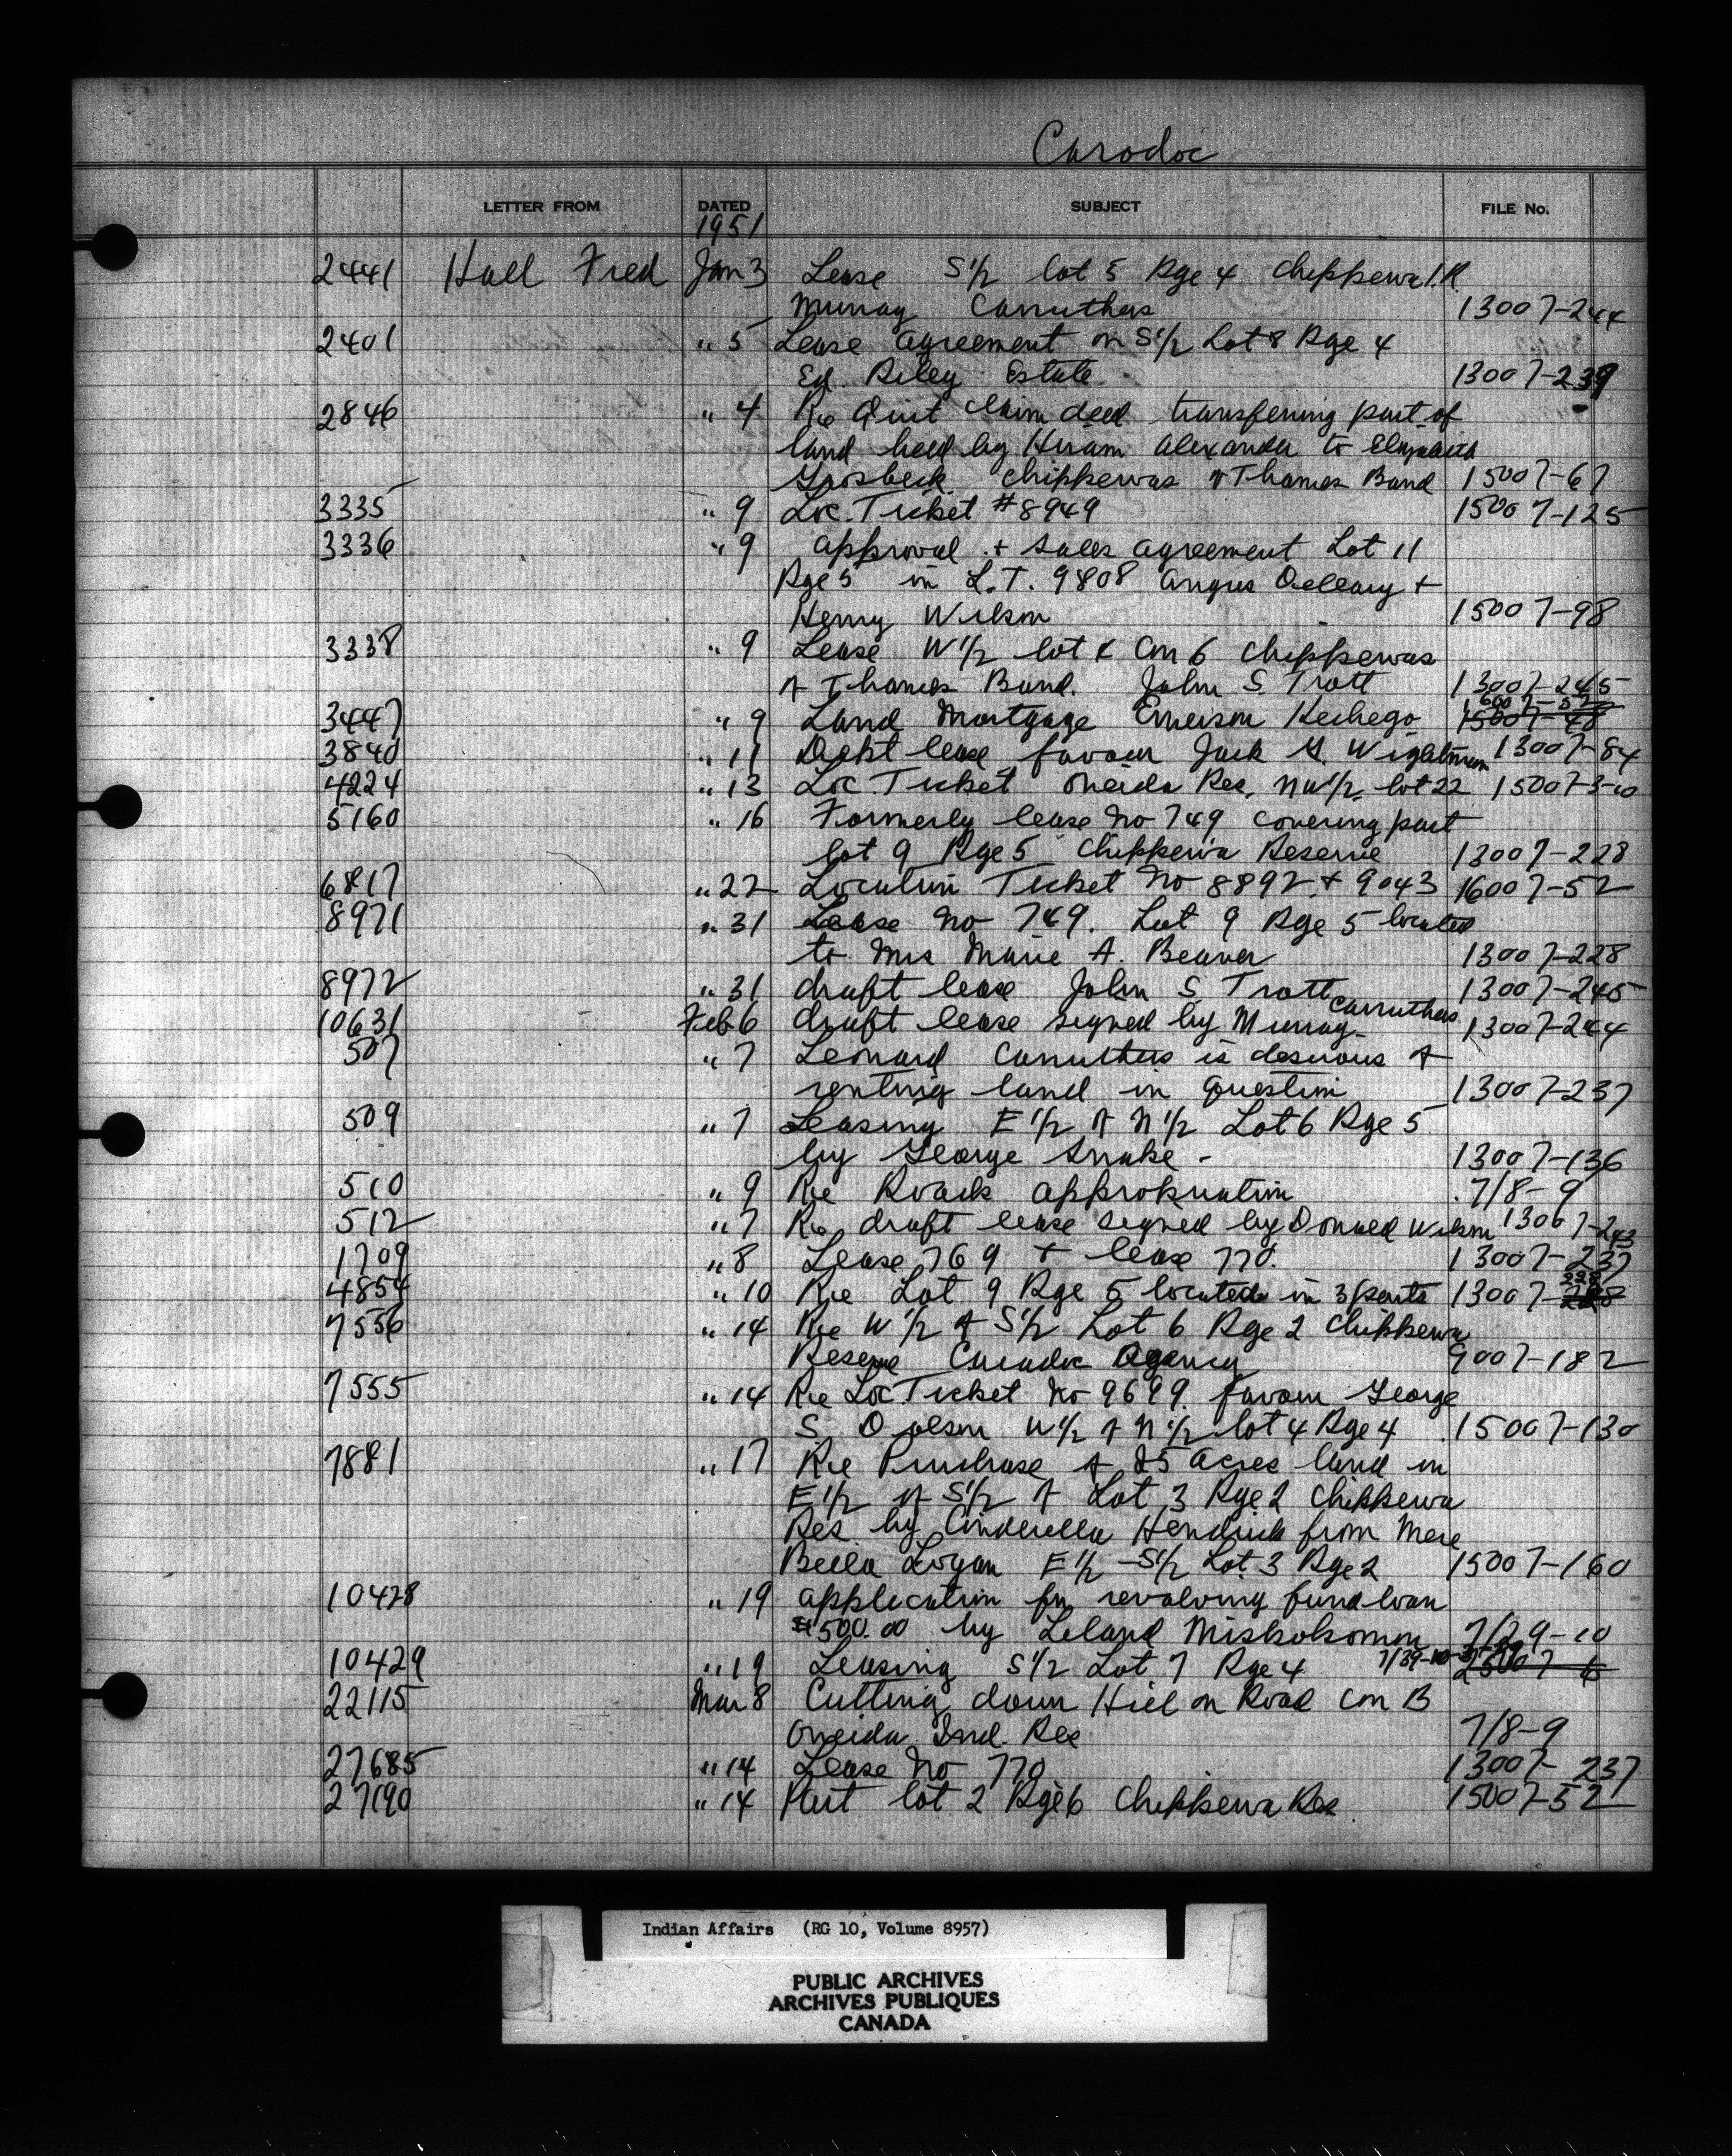 Carodoc
LETTER FROM DATED SUBJECT FILE No.
1951
2441 Hall Fred Jan 3 Lease S½ lot 5 Rge 4 Chippewa I.R.
Murray Carruthers 13007-244
2401 " 5 Lease agreement on S½ Lot 8 Rge 4
Ed. Riley Estate 13007-239
2846 " 4 Re Quit Claim deed transfering part of
land held by Hiram Alexander to Elizabeth
Grosbeck Chippewas of Thames Band 15007-67
3335 " 9 Loc. Ticket #8949 15007-125
3336 " 9 approval + sales agreement Lot 11
Rge 5 in L.T. 9808 Angus +
Henry Wilson 15007-98
3338 " 9 Lease W½ lot Con 6 Chippewas
of Thames Band. John S. Trott 13007-245
3447 " 9 Land Mortgage Emerson Kechego 15007-48
3840 " 11 lease favour Jack Wightman 13007-84
4224 " 13 Loc. Ticket Oneida Res. NW½ lot 22 15007-3-10
5160 " 16 Formerly lease No 749 covering part
lot 9 Rge 5 Chippewa Reserve 13007-228
6817 " 22 Location Ticket No 8892 + 9043 16007-52
8971 " 31 Lease No 749. Lot 9 Rge 5 located
to Mrs Marie A. Beaver 13007-228
8972 " 31 draft lease John S. Trott 13007-245
10631 Feb 6 draft lease signed by Murray Carruthers 13007-244
507 " 7 Leonard Carruthers is desirous of
renting land in question 13007-237
509 " 7 Leasing E½ of N½ Lot 6 Rge 5
by George Snake - 13007-136
510 " 9 Re Roads appropriation 7/8-9
512 " 7 Re draft lease signed by Donald Wilson 13007-243
1709 " 8 Lease 769 + lease 770. 13007-237
4854 " 10 Re Lot 9 Rge 5 located in 3 parts 13007-228
7556 " 14 Re W½ of S½ Lot 6 Rge 2 Chippewa
Reserve Caradoc Agency 9007-182
7555 " 14 Re Loc. Ticket No 9699. favour George
S. W½ of N½ lot 4 Rge 4 15007-130
7881 " 17 Re Purchase of 25 acres land in
E½ of S½ of Lot 3 Rge 2 Chippewa
Res. by Cinderella Hendrick from
Bella Logan E½ - S½ Lot 3 Rge 2 15007-160
10428 " 19 application for revolving fund loan
$500.00 by Leland Miskokomon 7/29-10
10429 " 19 Leasing S½ Lot 7 Rge 4
22115 Mar 8 Cutting down Hill on Road Con B
Oneida Ind. Res 7/8-9
27685 " 14 Lease No 770 13007-237
27190 " 14 Part lot 2 Rge 6 Chippewa Res. 15007-52
Indian Affairs (RG 10, Volume 8957)
PUBLIC ARCHIVES
ARCHIVES PUBLIQUES
CANADA